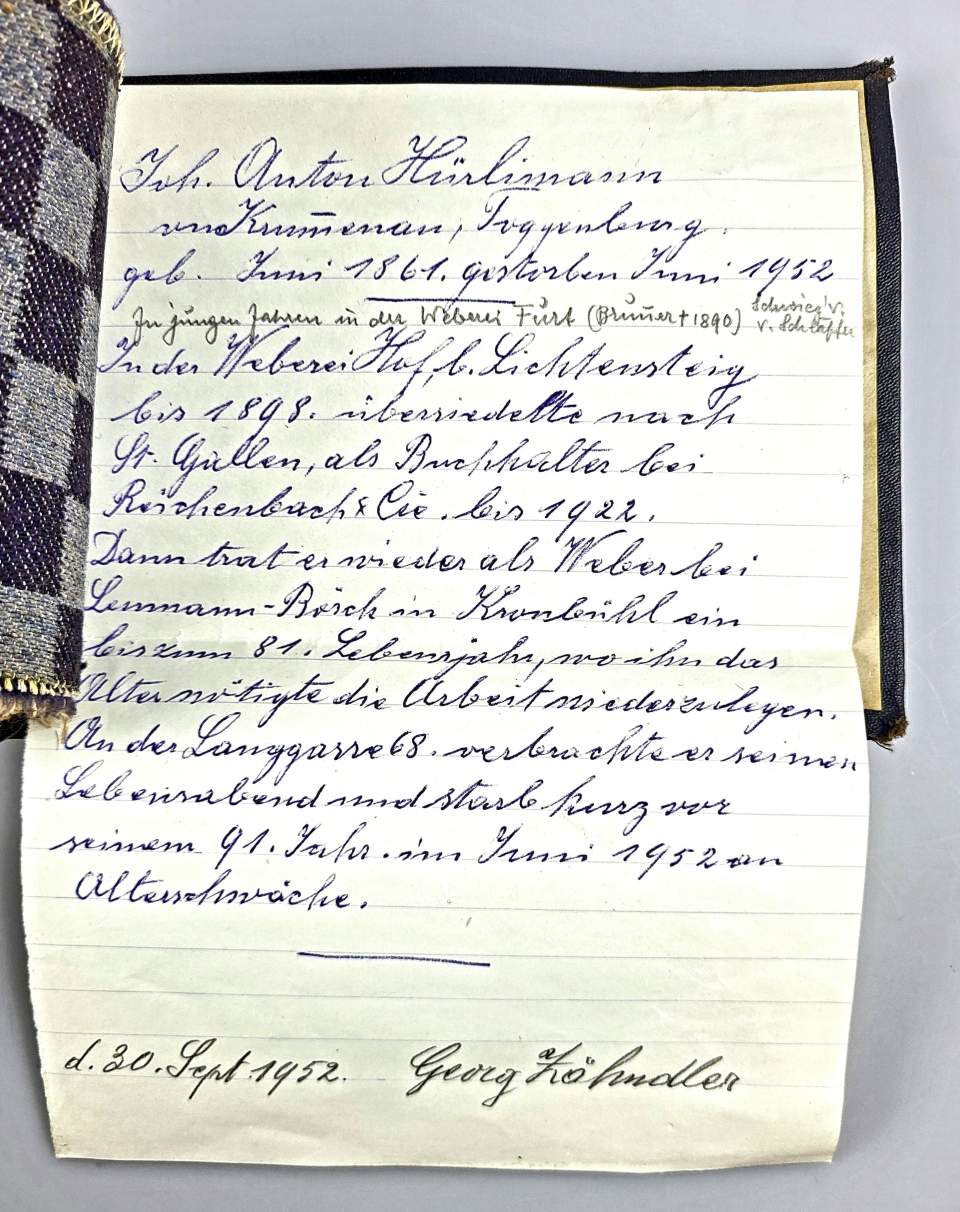 Joh. Anton Hürlimann
von Krum̅enau, Toggenburg.
geb. Juni 1861. gestorben Juni 1952
In jungen Jahren in der Weberei Furt (Brun̅er † 1890) Schwieg'v.
v. Schläpfer
In der Weberei Hof, b. Lichtensteig
bis 1898. übersiedelte nach
St. Gallen, als Buchhalter bei
Reichenbach & Cie. bis 1922.
Dann trat er wieder als Weber bei
Lenmann-Bösch in Kronbühl ein
bis zum 81. Lebensjahr, wo ihn das
Alter nötigte die Arbeit niederzulegen.
An der Langgasse 68. verbrachte er seinen
Lebensabend und starb kurz vor
seinem 91. Jahr. im Juni 1952 an
Alterschwäche.
d. 30. Sept. 1952. Georg